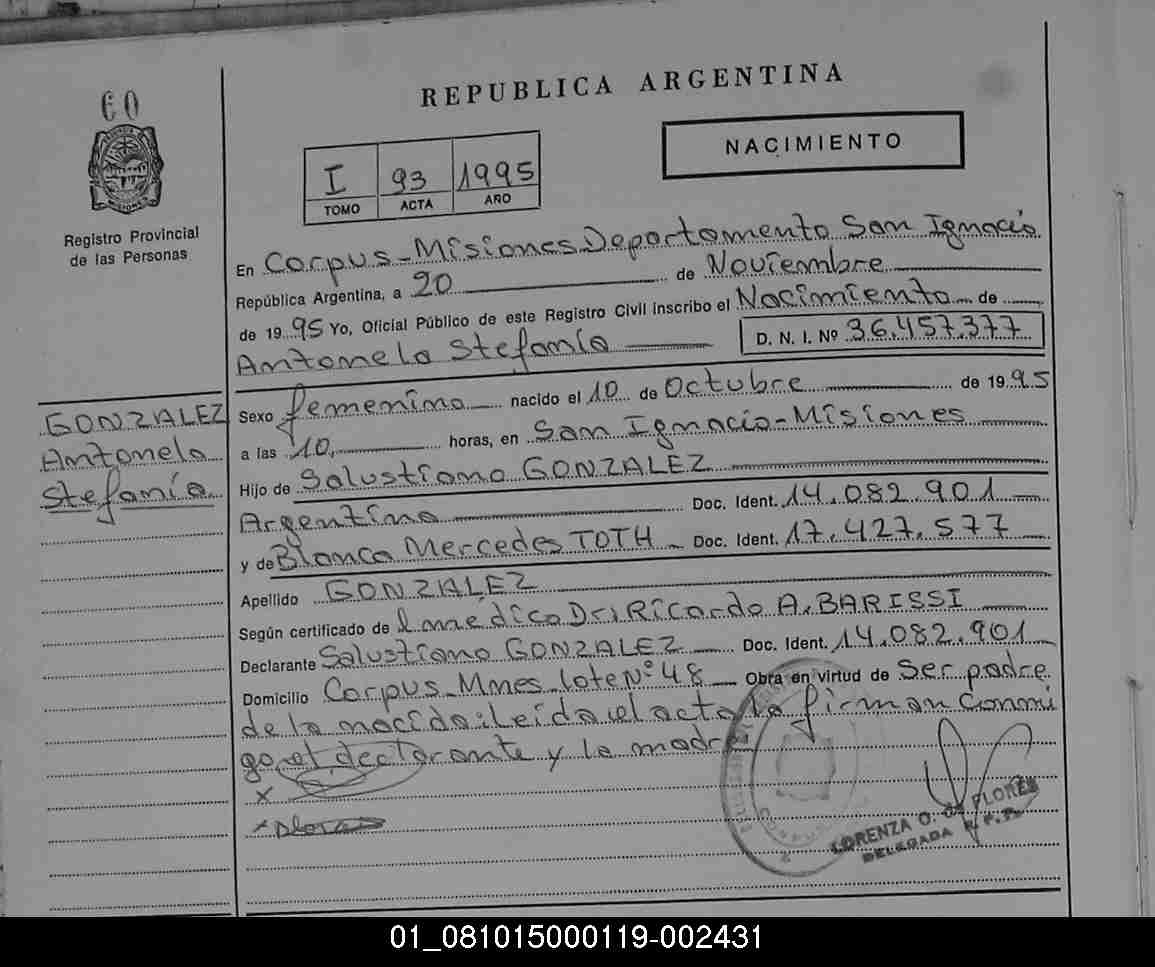 60
REPUBLICA ARGENTINA
NACIMIENTO
I 93 1995
TOMO ACTA AÑO
Registro Provincial
de las Personas
En Corpus - Misiones Departamento San Ignacio
República Argentina, a 20 de Noviembre
de 1995 Yo, Oficial Público de este Registro Civil inscribo el Nacimiento de
Antonela Stefanía D. N. I. Nº 36.457.377
GONZALEZ
Antonela
Stefanía
Sexo femenino nacido el 10 de Octubre de 1995
a las 10, horas, en San Ignacio - Misiones
Hijo de Salustiano GONZALEZ
Argentino Doc. Ident. 14.082.901
y de Blanca Mercedes TOTH Doc. Ident. 17.427.577
Apellido GONZALEZ
Según certificado de l medico Dr. Ricardo A. BARISSI
Declarante Salustiano GONZALEZ Doc. Ident. 14.082.901
Domicilio Corpus - Mnes lote Nº 48 Obra en virtud de Ser padre
de la nacida: Leida el acta la firman Conmi
go, el declarante y la madre
x
x
LORENZA O. DE FLORES
DELEGADA R.P.P.
01_081015000119-002431